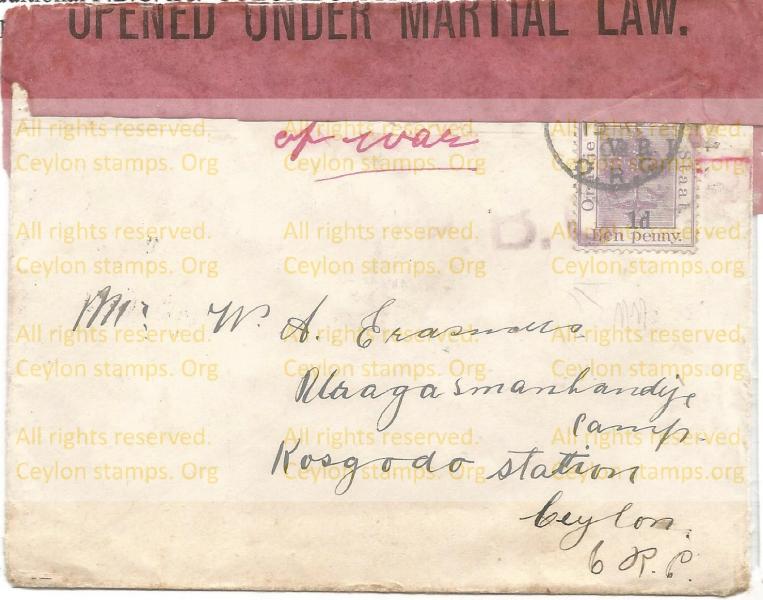 OPENED UNDER MARTIAL LAW.
of war
Oranje
Staat.
1d
Een penny.
Mr. W. A. Erasmus
Uraagasmanhandije
Camp.
Kosgodo station
Ceylon.
All rights reserved.
Ceylon stamps. Org
All rights reserved.
Ceylon stamps. Org
All rights reserved.
Ceylon stamps. Org
All rights reserved.
Ceylon stamps. Org
All rights reserved.
Ceylon stamps. Org
All rights reserved.
Ceylon stamps. Org
All rights reserved.
Ceylon stamps. Org
All rights reserved.
Ceylon stamps. Org
All rights reserved.
Ceylon stamps. Org
All rights reserved.
Ceylon stamps. Org
All rights reserved.
Ceylon stamps. Org
All rights reserved.
Ceylon stamps. Org